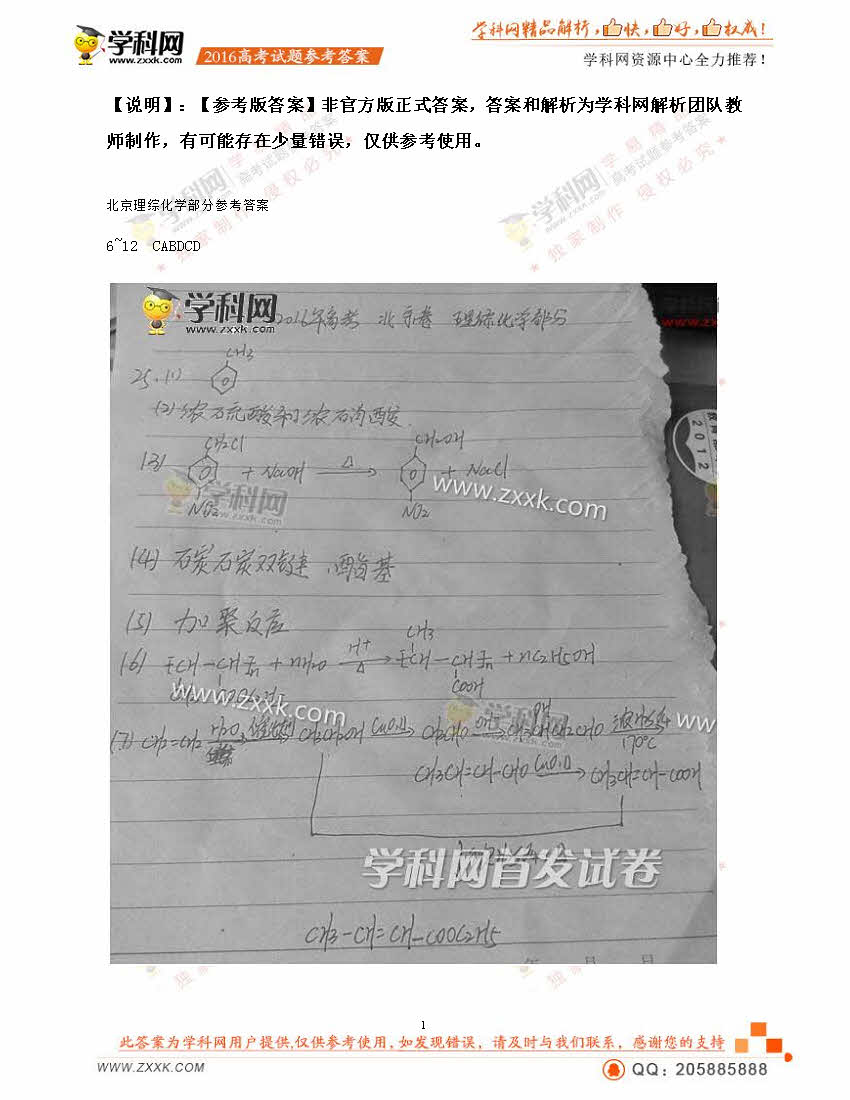 学科网
www.zxxk.com
2016高考试题参考答案
学科网精品解析,快,好,权威!
学科网资源中心全力推荐!
【说明】:【参考版答案】非官方版正式答案,答案和解析为学科网解析团队教
师制作,有可能存在少量错误,仅供参考使用。
北京理综化学部分参考答案
6~12 CABDCD
学科网
www.zxxk.com
2016年高考 北京卷 理综化学部分
25.(1) CH3
(2)浓硫酸和浓硝酸.
(3) CH2Cl NO2 + NaOH △ → CH2OH NO2 + NaCl
学科网
www.zxxk.com
www.zxxk.com
2012
(4) 碳碳双键、酯基
(5) 加聚反应
(6) [CH-CH]n + nH2O H+ △ → CH3 [CH-CH]n COOH + nC2H5OH
www.zxxk.com
(7) CH2=CH2 H2O 催化剂 → CH3CH2OH Cu O2 △ → CH3CHO OH- → CH3CHCH2CHO OH 浓H2SO4 170℃
CH3CH=CH-CHO Cu O2 △ → CH3CH=CH-COOH
学科网首发试卷
CH3-CH=CH-COOC2H5
1
此答案为学科网用户提供,仅供参考使用,如发现错误,请及时与我们联系,感谢您的支持
WWW.ZXXK.COM
QQ:205885888